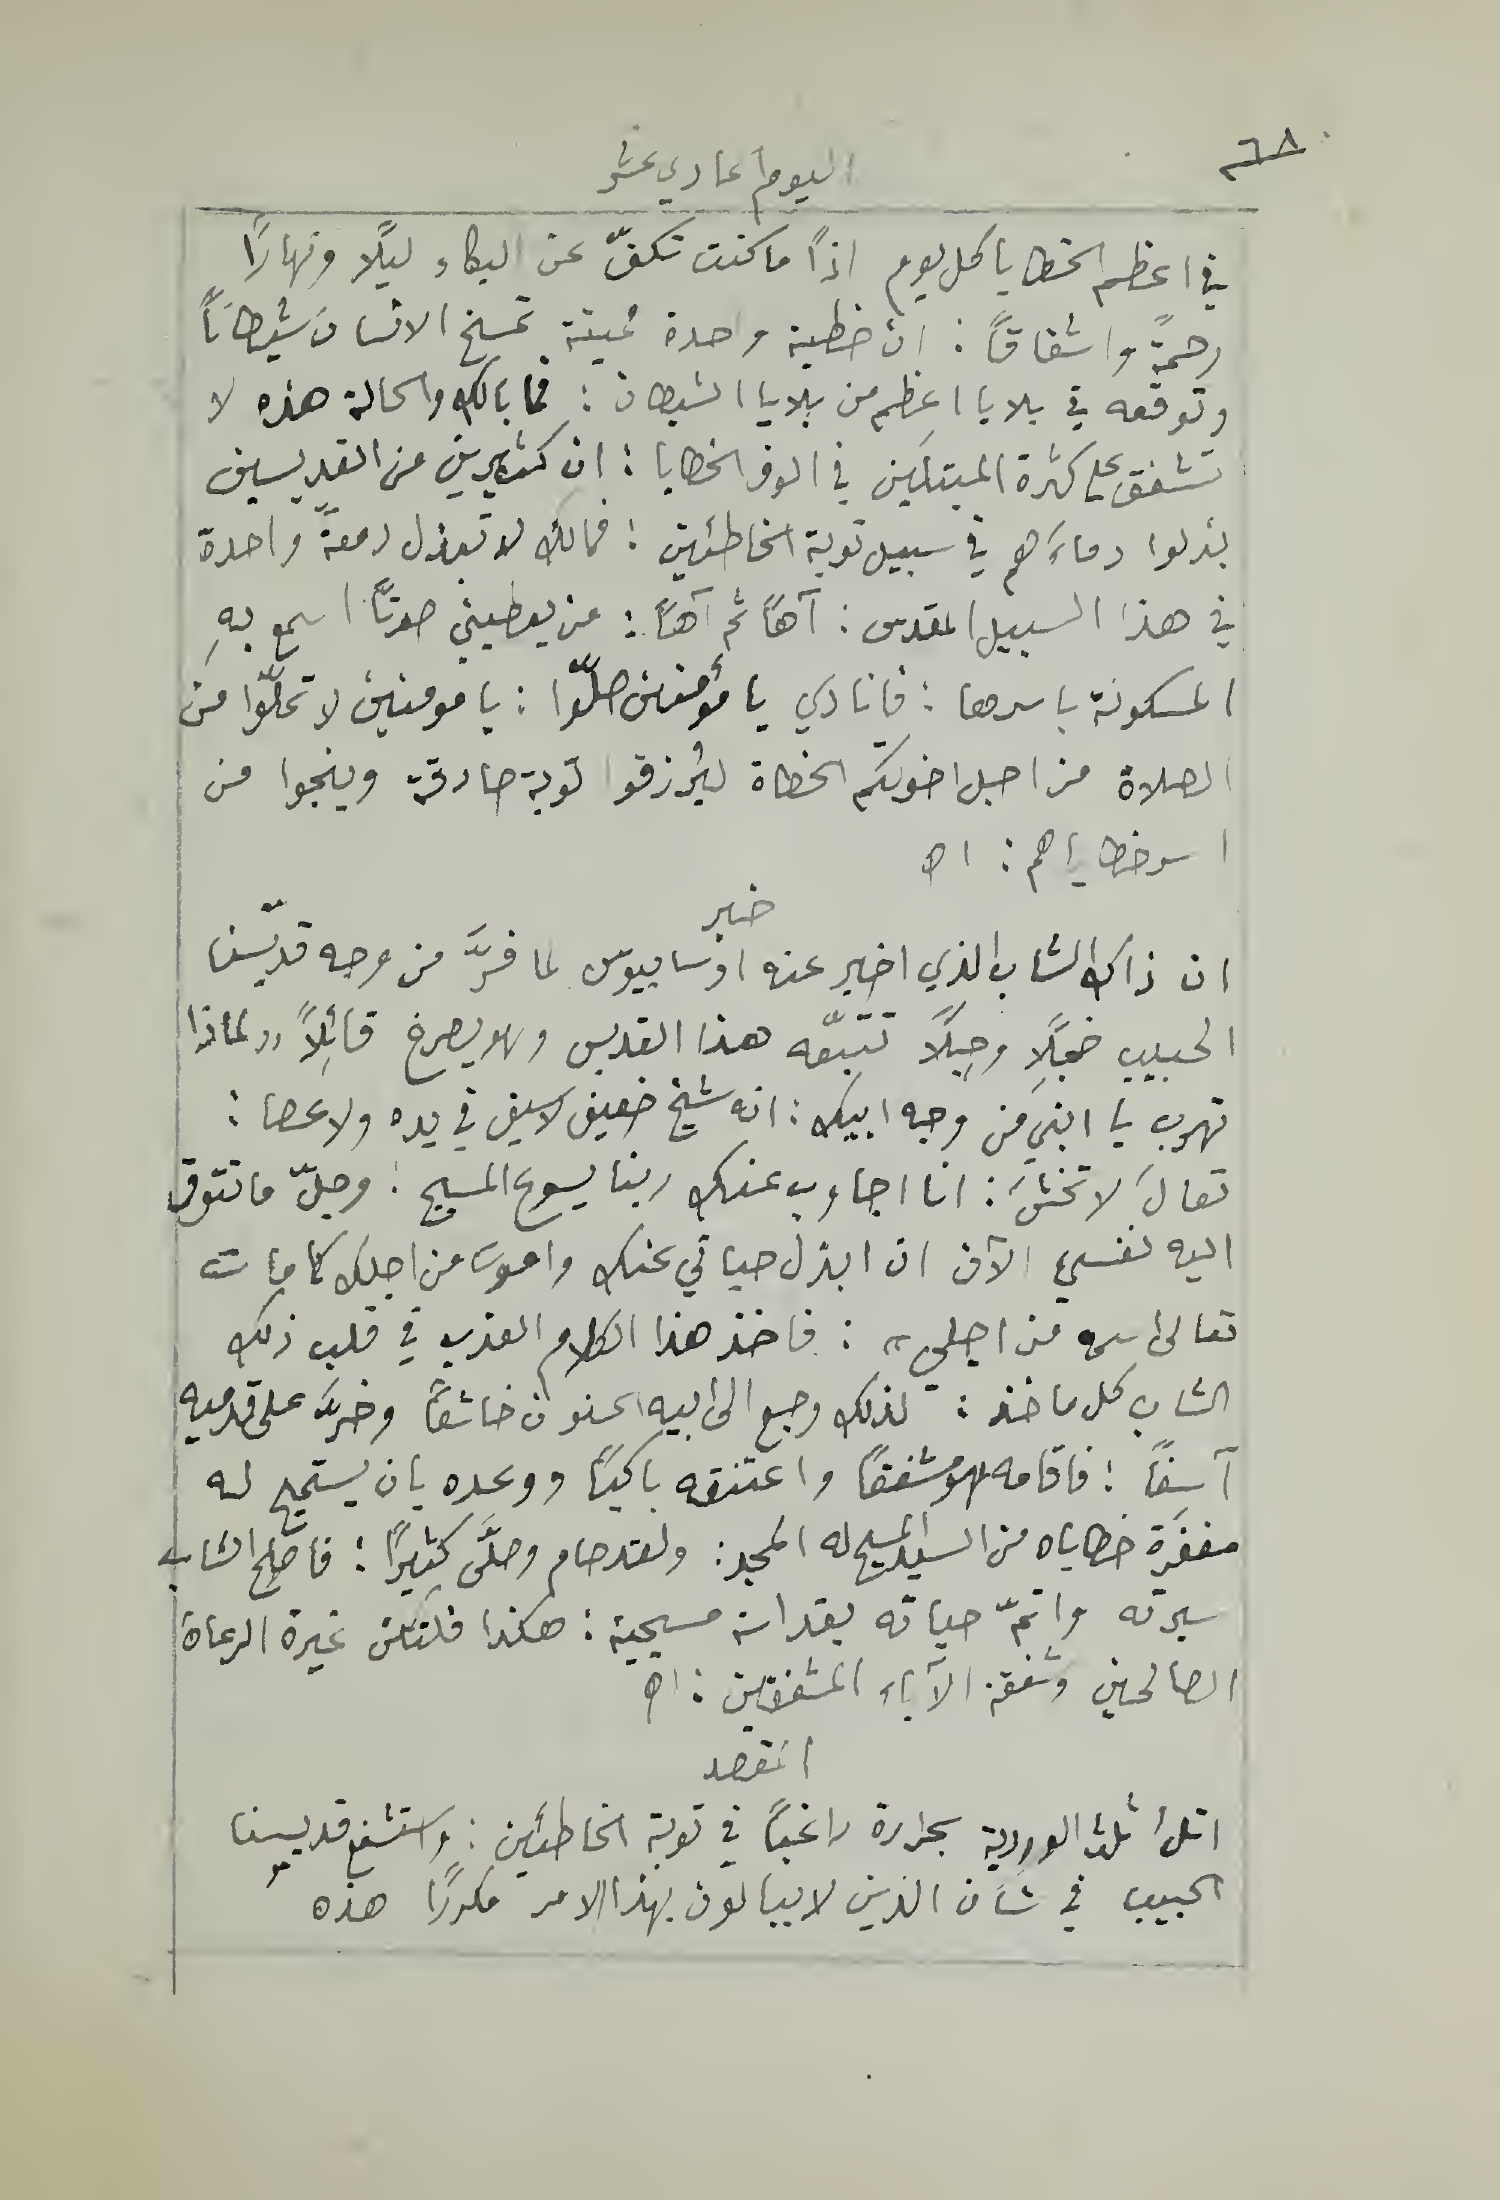 ٦٨
اليوم الحادي عشر
في اعظم الخطايا كل يوم اذًا ما كنت تكفّ عن البكاء ليلًا ونهارًا
رحمةً واشفاقًا : ان خطية واحدة مميتة تمسخ الانسان شيطانًا
وتوقعه في بلايا اعظم من بلايا الشيطان : فما بالك والحالة هذه لا
تشفق على كثرة المبتلَين في الوف الخطايا : ان كثيرين من القديسين
بذلوا دماءَهم في سبيل توبة الخاطئين : فمالك لا تبذل دمعةً واحدة
في هذا السبيل المقدس : آهًا ثم آهًا : من يعطيني صوتًا اسمع بهِ
المسكونة باسرها : فانادي يا مؤمنين صلّوا : يا مومنين لا تملّوا من
الصلاة من اجل اخوتكم الخطاة ليُرزقوا توبة صادقة وينجوا من
اسر خطاياهم : اه
خبر
ان ذاك الشاب الذي اخبر عنه اوسابيوس لما فرَّ من وجه قديّسنا
الحبيب خجِلًا وجِلًا تتبّعه هذا القديس وهو يصرخ قائلًا „لماذا
تهرب يا ابني من وجه ابيك : انه شيخ ضعيف لا سيف في يده ولا عصا :
تعالَ لا تخشَ : انا اجاوب عنك ربنا يسوع المسيح : وجلّ ما تتوق
اليه نفسي الآن ان ابذل حياتي عنك واموت من اجلك كما مات
تعالى اسمه من اجلي“ : فاخذ هذا الكلام العذب في قلب ذلك
الشاب كل ماخذ : لذلك رجع الى ابيه الحنون خاشعًا وخرَّ على قدميه
آسِفًا : فاقامه هو مشفقًا واعتنقه باكيًا ووعده بان يستميح له
مغفرة خطاياه من السيد المسيح له المجد : ولقد صام وصلَّى كثيرًا : فاصلح الشاب
سيرته واتمّ حياته بقداسة مسيحية : هكذا فلتكن غيرة الرعاة
الصالحين وشفقة الآباء المشفقين : اه
المقصد
اتلُ ثلث الوردية بحرارة راغبًا في توبة الخاطئين : واستشفع قديسنا
الحبيب في شأن الذين لا يبالون بهذا الامر مكررًا هذه